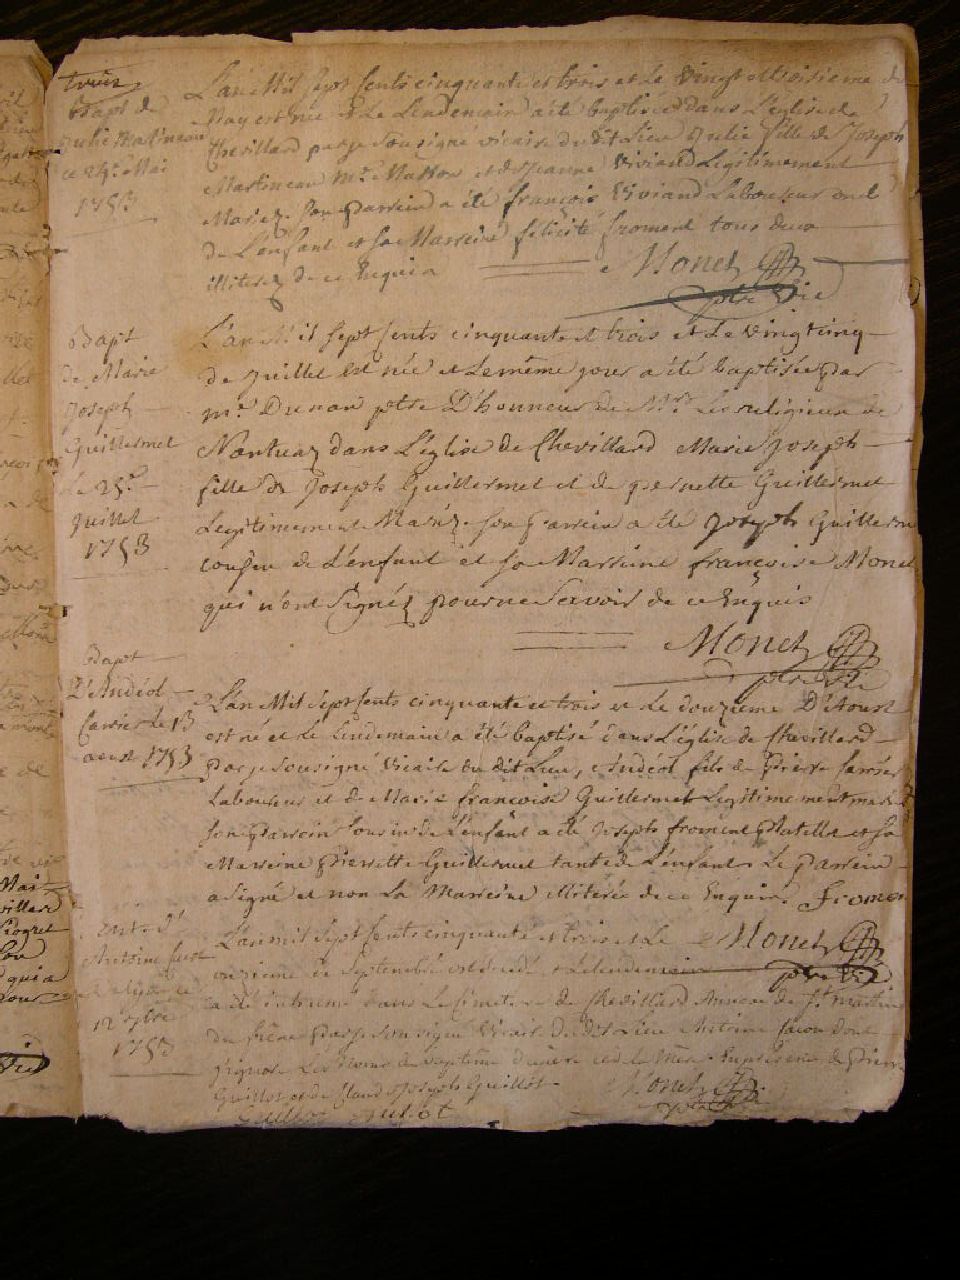 trois
Bapt de
Julie Martineau
ce 24e Mai
1753
L'an Mil sept sents cinquante et trois et Le vingt et troisieme de
May est née et Le Lendemain a été baptisée dans L'église de
Chevillard par je sousigné vicaire du dit Lieu Julie fille de Joseph
Martineau me Masson et de Jeanne Viviand Legitimement
Mariez. son parrein a été françois Viviand Laboureur oncle
de L'enfant et sa Marreine félicité froment tous deux
illiterez de ce Enquis
Monet
ptre Vic
Bapt
de Marie
Joseph
Guillermet
Le 25e
Juillet
1753
L'an Mil sept sents cinquante et trois et Le vingt cinq
de Juillet est née et Le même jour a été baptisée par
mr Dunan ptre D'honneur de Mrs Les religieux de
Nantuaz dans L'église de Chevillard Marie Joseph
fille de Joseph Guillermet et de pernette Guillermet
Legitimement Mariéz son parrein a été Joseph Guillerme
cousin de L'enfant et sa Marreine françoise Monet
qui n'ont signéz pour ne Scavoir de ce Enquis
Monet
ptre Vic
Bapt
D'Andéol
Carrier Le 13
aoust 1753
L'an Mil sept sents cinquante et trois et Le douzieme D'Aoust
est né et Le Lendemain a été baptisé dans L'église de Chevillard
par je sousigné Vicaire du dit Lieu, Andéol fils de Pierre Carrier
Laboureur et de Marie françoise Guillermet Legitimement mariéz
son parrein cousin de L'enfant a été Joseph froment et sa
Marreine pierrette Guillermet tante de L'enfant. Le parrein
a signé et non La Marreine illiterée de ce Enquise Fromen
Monet
ptre Vic
Ent. d'
Antoine
12 7bre
1753
L'an mil sept sents cinquante et trois et Le
onzieme de Septembre est decedé et Le lendemain
a été enterré dans Le Cimetiere de Chevillard Annexe de St Martin
du frêne par je sousigné Vicaire du dit Lieu Antoine dont
j'ignore Les Noms de Baptême de père et de Mere. En présence de Pierre
Guillot et de Claud Joseph Guillot
Monet
ptre Vic